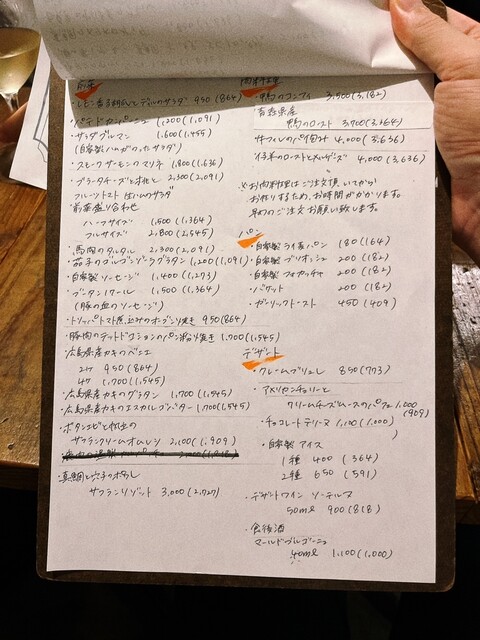 前菜
・レモン香る明石ダコとディルのサラダ 950 (864)
・パテドカンパーニュ 1,200 (1,091)
・サラダグルマン 1,600 (1,455)
(自家製ハムがのったサラダ)
・スモークサーモンのマリネ 1,800 (1,636)
・ブラータチーズと
フルーツトマト 甘いのサラダ 2,300 (2,091)
前菜盛り合わせ
ハーフサイズ 1,500 (1,364)
フルサイズ 2,800 (2,545)
・馬肉のタルタル 2,300 (2,091)
・茄子のゴルゴンゾーラグラタン 1,200 (1,091)
・自家製ソーセージ 1,400 (1,273)
・ブーダンノワール 1,500 (1,364)
(豚の血のソーセージ)
・トリッパトマト煮込みのオーブン焼き 950 (864)
・豚肉のデュクセルのパン粉焼き 1,700 (1,545)
・広島県産カキのベニエ
2ヶ 950 (864)
4ヶ 1,700 (1,545)
・広島県産カキのグラタン 1,700 (1,545)
・広島県産カキのエスカルゴバター 1,700 (1,545)
・ボタンエビと
サフランクリームオムレツ 2,100 (1,909)
・真鯛と穴子の
サフランリゾット 3,000 (2,727)
肉料理
・鴨のコンフィ 3,500 (3,182)
・青森県産
鴨のロースト 3,700 (3,364)
・牛フィレのパイ包み 4,000 (3,636)
・仔羊のロースト 4,000 (3,636)
※お肉料理はご注文頂いてから
お作りするため、お時間がかかります。
早めのご注文お願い致します。
パン
・自家製ライ麦パン 180 (164)
・自家製ブリオッシュ 200 (182)
・自家製フォカッチャ 200 (182)
・バゲット 200 (182)
・ガーリックトースト 450 (409)
デザート
・クレームブリュレ 850 (773)
・アメリカンチェリーと
クリームチーズムースのパフェ 1,000 (909)
・チョコレートテリーヌ 1,100 (1,000)
・自家製アイス
1種 400 (364)
2種 650 (591)
・デザートワイン ソーテルヌ
50ml 900 (818)
・食後酒
マールドブルゴーニュ
40ml 1,100 (1,000)